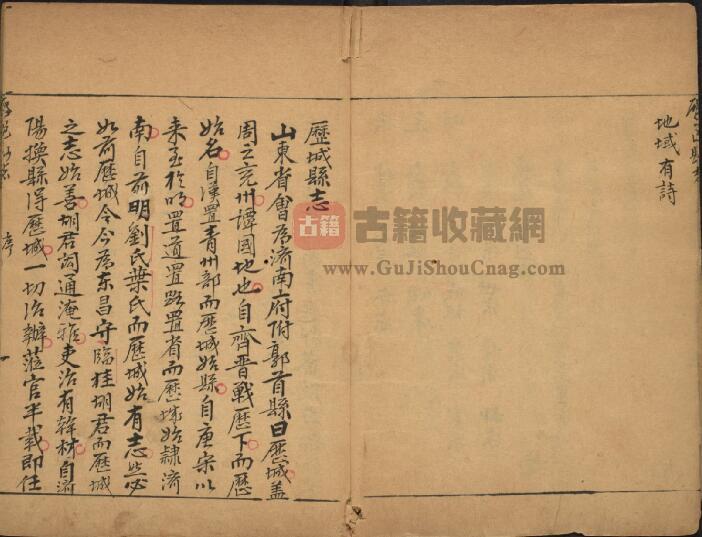 地域有詩
歷城縣志
山東省會爲濟南府附郭首縣曰歷城蓋
周之兗州譚國地也自齊晉戰歷下而歷
始名自漢置青州部而歷城始縣自唐宋以
來至於明置道置路置省而歷城始隸濟
南自前明劉氏葉氏而歷城始有志然必
如前歷城令今爲東昌守臨桂胡君而歷城
之志始善胡君詞通淹雅吏治有幹材自濟
陽換縣得歷城一切治辦蒞官半載即任
序
一
古籍
古籍收藏網
www.GuJiShouCnag.com